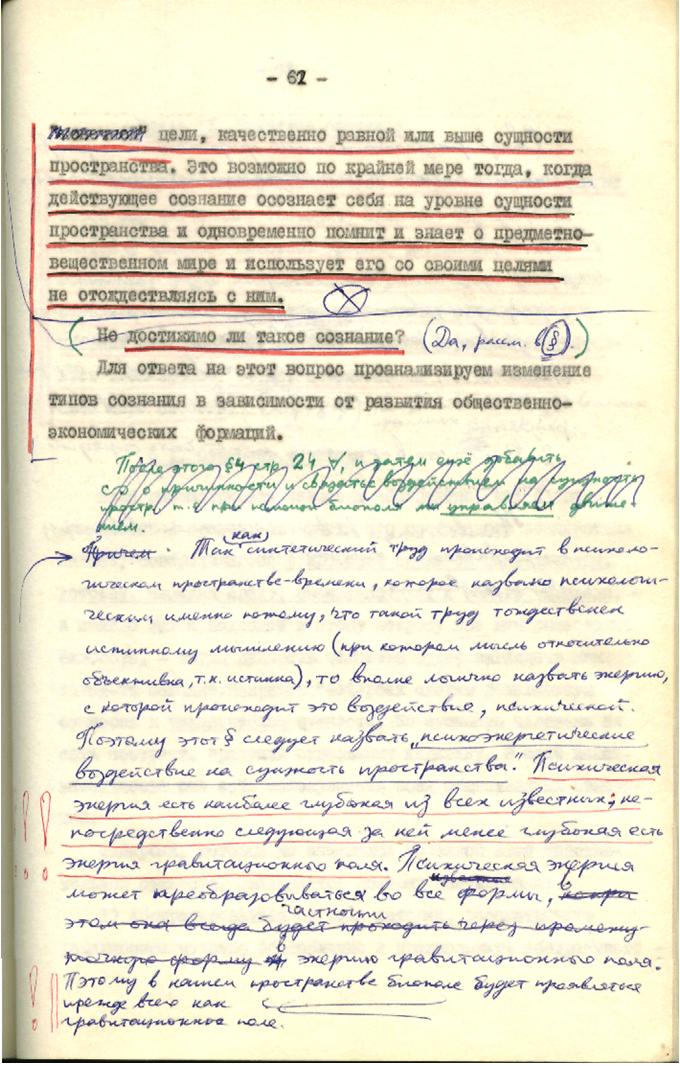 - 61 -
цели, качественно равной или выше сущности
пространства. Это возможно по крайней мере тогда, когда
действующее сознание осознает себя на уровне сущности
пространства и одновременно помнит и знает о предметно-
вещественном мире и использует его со своими целями
не отождествляясь с ним.
( Но достижимо ли такое сознание? (Да, рассм. в §). )
Для ответа на этот вопрос проанализируем изменение
типов сознания в зависимости от развития общественно-
экономических формаций.
После этого §4 стр. 24 ∀, и затем ещё добавить
о причинности и связать с воздействием на сущность
простр. т.е. при помощи биополя мы управляем движе-
нием.
Причем. Так как синтетический труд происходит в психоло-
гическом пространстве-времени, которое названо психологи-
ческим именно потому, что такой труд тождественен
истинному мышлению (при котором мысль относительно
объективна, т.к. истинна), то вполне логично назвать энергию,
с которой происходит это воздействие, психической.
Поэтому этот § следует назвать „психоэнергетические
воздействие на сущность пространства." Психическая
энергия есть наиболее глубокая из всех известных; не-
посредственно следующая за ней менее глубокая есть
энергия гравитационного поля. Психическая энергия
известные
может преобразовываться во все формы, в
частности
этом она всегда будет проходить через промежу-
точную форму в энергию гравитационного поля.
Пэтому в нашем пространстве биополе будет проявляться
прежде всего как
гравитационное поле.